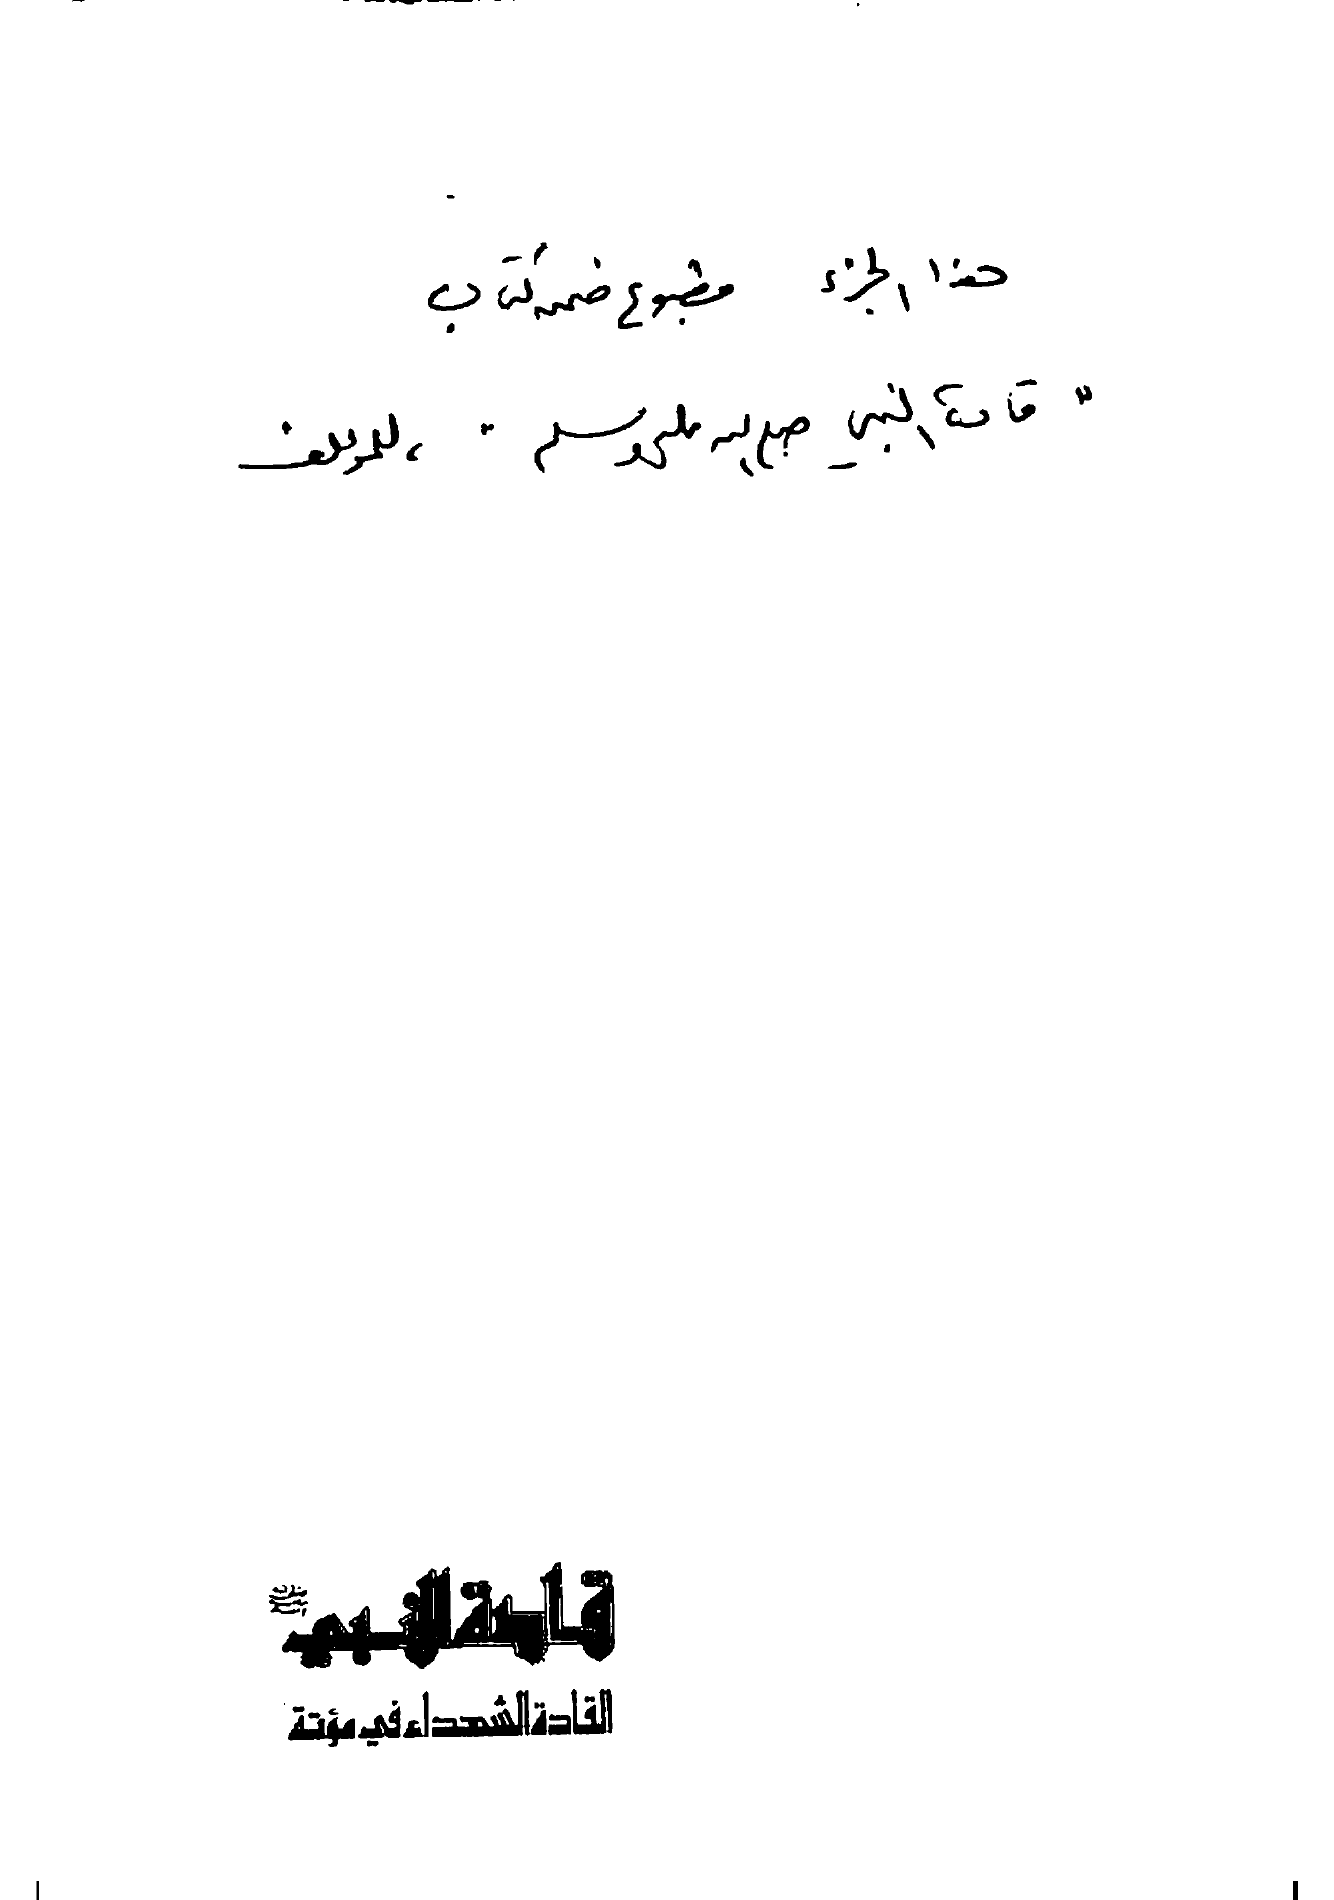 هذا الجزء مطبوع ضمن كتاب
" قادة النبي صلى الله عليه وسلم " ، للمؤلف
قادة النبي ﷺ
القادة الشهداء في مؤتة